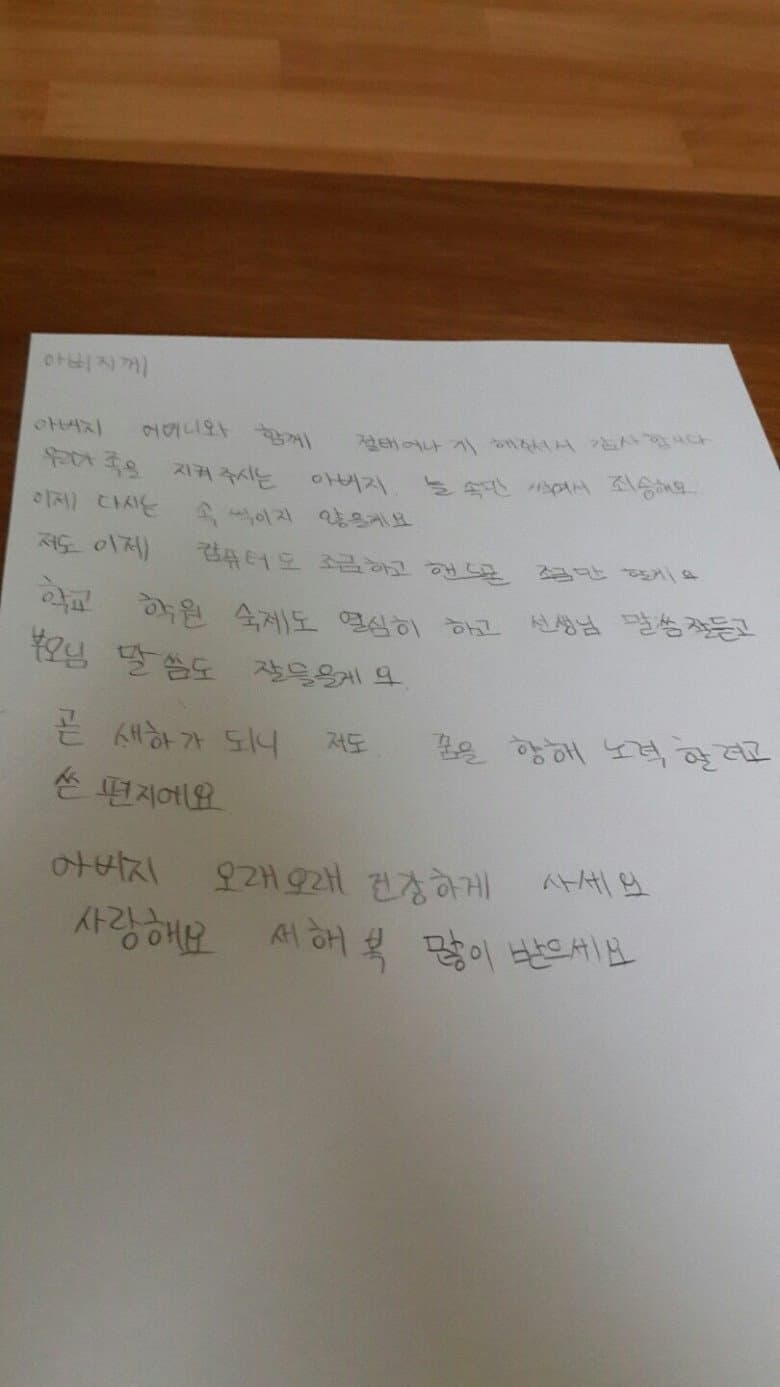 아버지께
아버지 어머니와 함께 절태어나게 해주셔서 감사합니다
우리가족을 지켜주시는 아버지. 늘 속만 썩여서 죄송해요
이제 다시는 속썩이지 않을게요
저도 이제 컴퓨터도 조금하고 핸드폰 조금만 할게요
학교 학원 숙제도 열심히 하고 선생님 말씀잘듣고
부모님 말씀도 잘들을게요.
곧 새하가 되니 저도 꿈을 향해 노력할려고
쓴 편지에요
아버지 오래오래 건강하게 사세요
사랑해요 새해 복 많이 받으세요